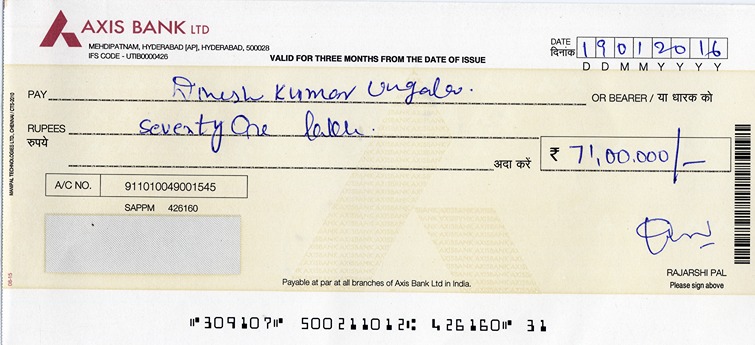 AXIS BANK LTD
MEHDIPATNAM, HYDERABAD [AP], HYDERABAD, 500028
IFS CODE - UTIB0000426
VALID FOR THREE MONTHS FROM THE DATE OF ISSUE
DATE दिनांक 19012016
D D M M Y Y Y Y
PAY Dinesh Kumar Ungalev. OR BEARER / या धारक को
RUPEES रुपये Seventy One lakh.
अदा करें ₹ 71,00.000/-
A/C NO. 911010049001545
SAPPM 426160
RAJARSHI PAL
Please sign above
Payable at par at all branches of Axis Bank Ltd in India.
MANIPAL TECHNOLOGIES LTD., CHENNAI / CTS-2010
08-15
⑈309107⑈ 500211012⑆ 426160⑈ 31